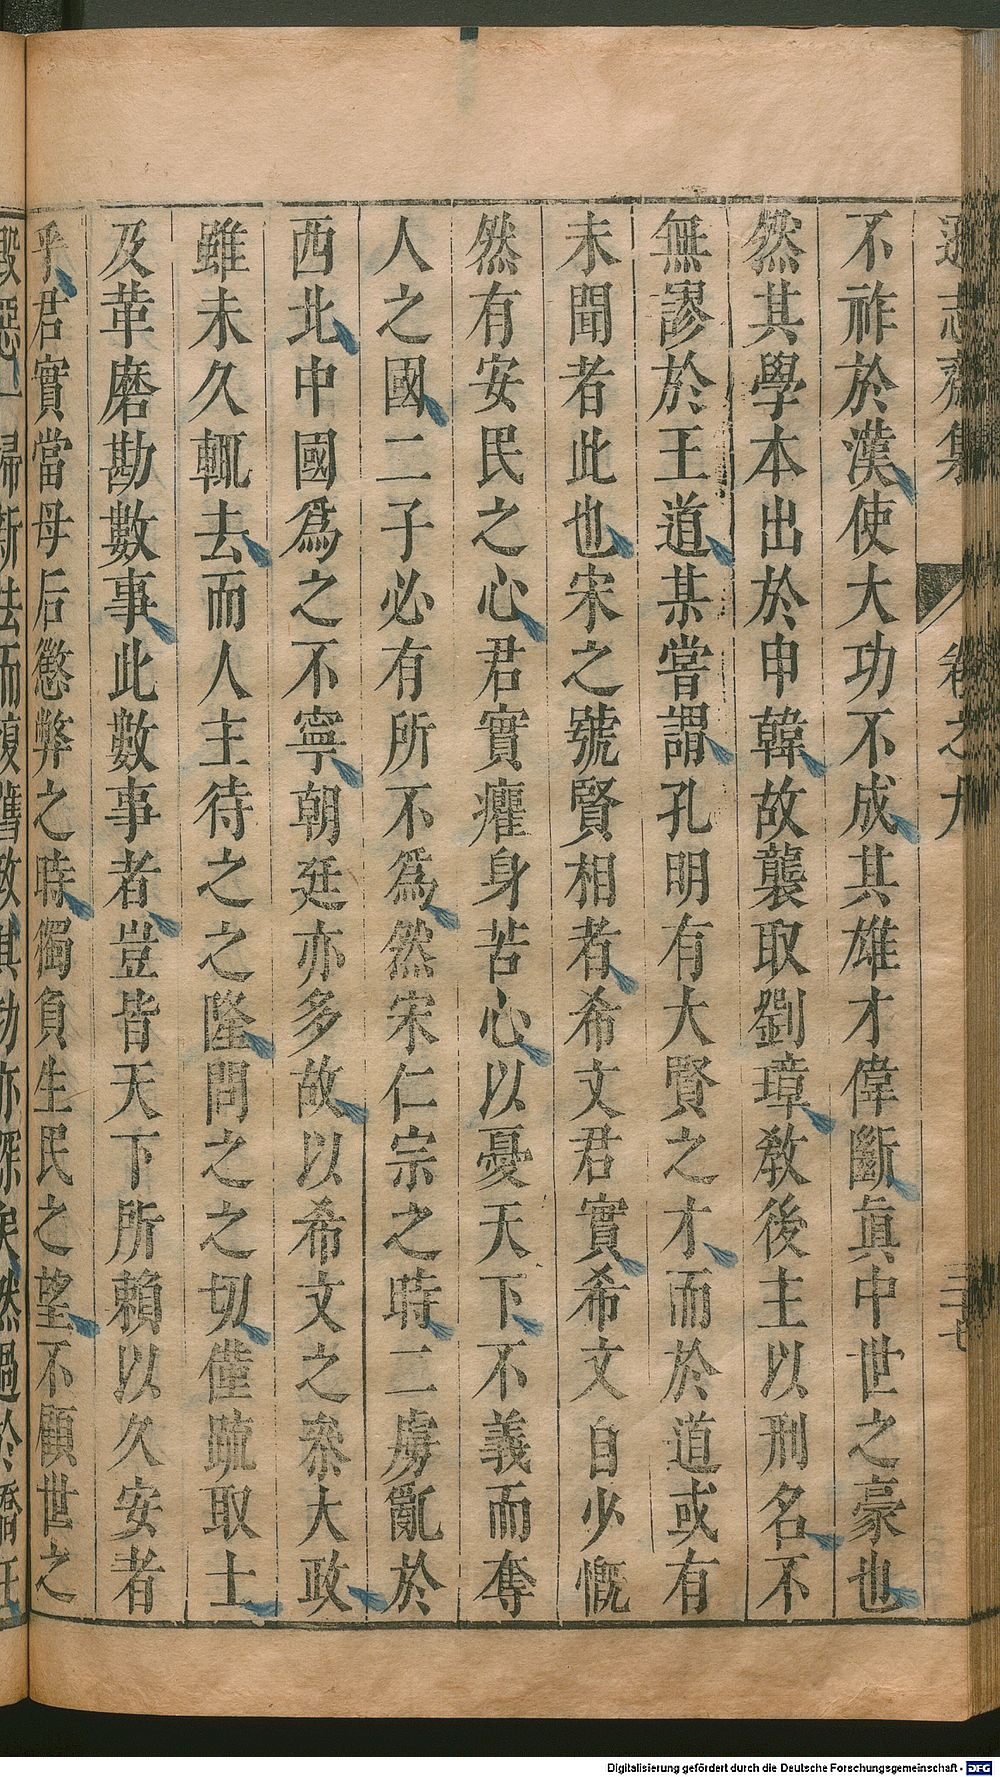 遜志齋集 卷之九 三十七
不祚於漢使大功不成其雄才偉斷眞中世之豪也
然其學本出於申韓故襲取劉璋敎後主以刑名不
無謬於王道某嘗謂孔明有大賢之才而於道或有
未聞者此也宋之號賢相者希文君實希文自少慨
然有安民之心君實癯身苦心以憂天下不義而奪
人之國二子必有所不爲然宋仁宗之時二虜亂於
西北中國爲之不寧朝廷亦多故以希文之叅大政
雖未久輒去而人主待之之隆問之之切僅疏取士
及革磨勘數事此數事者豈皆天下所賴以久安者
乎君實當母后懲弊之時獨負生民之望不顧世之
毀惡一歸新法而復舊敎其功亦深矣然過於矯枉
Digitalisierung gefördert durch die Deutsche Forschungsgemeinschaft - DFG